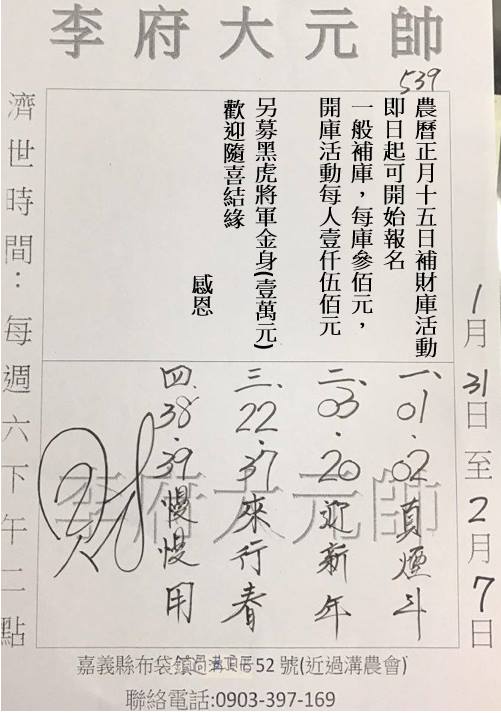 李府大元帥
539
1月31日至2月7日
農曆正月十五日補財庫活動
即日起可開始報名
一般補庫，每庫參佰元，
開庫活動每人壹仟伍佰元
另募黑虎將軍金身(壹萬元)
歡迎隨喜結緣
感恩
一、01.02真煙斗
二、03.20迎新年
三、22.37來行春
四、38.39慢慢用
李府大元帥
濟世時間：每週六下午二點
嘉義縣布袋鎮52號(近過溝農會)
聯絡電話:0903-397-169